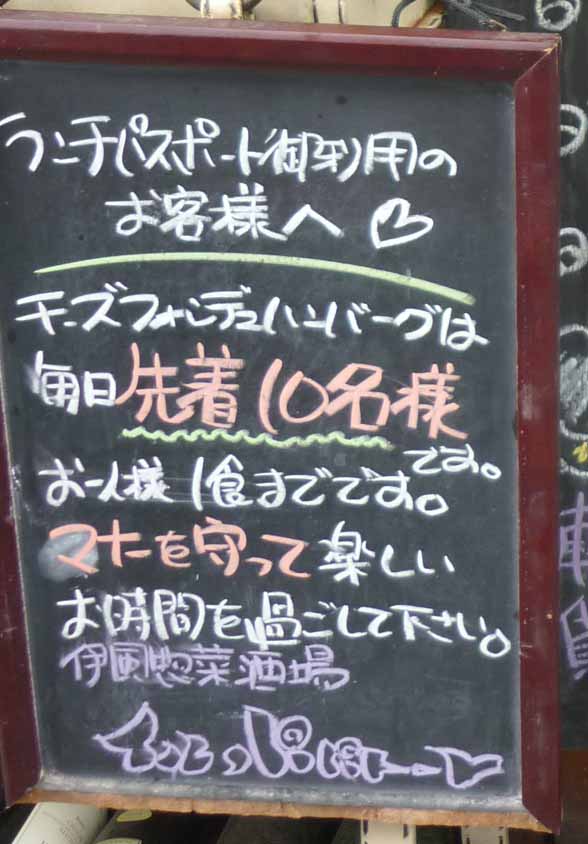 ランチパスポート御利用の
お客様へ♡
チーズフォンデュハンバーグは
毎日先着10名様
です。
お一人様1食までです。
マナーを守って楽しい
お時間を過ごして下さい。
伊風惣菜酒場